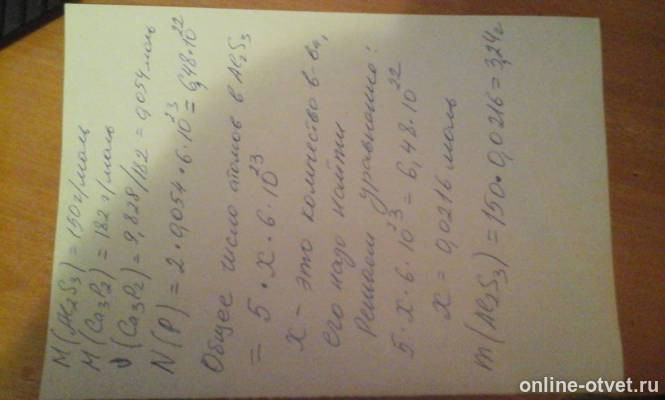 M(Al₂S₃) = 150 г/моль
M(Ca₃P₂) = 182 г/моль
ν(Ca₃P₂) = 9,828/182 = 0,054 моль
N(P) = 2 • 0,054 • 6 • 10²³ = 6,48 • 10²²
Общее число атомов в Al₂S₃
= 5 • x • 6 • 10²³
x - это количество в-ва,
его надо найти
Решаем уравнение:
5 • x • 6 • 10²³ = 6,48 • 10²²
x = 0,0216 моль
m(Al₂S₃) = 150 • 0,0216 = 3,24г
online-otvet.ru